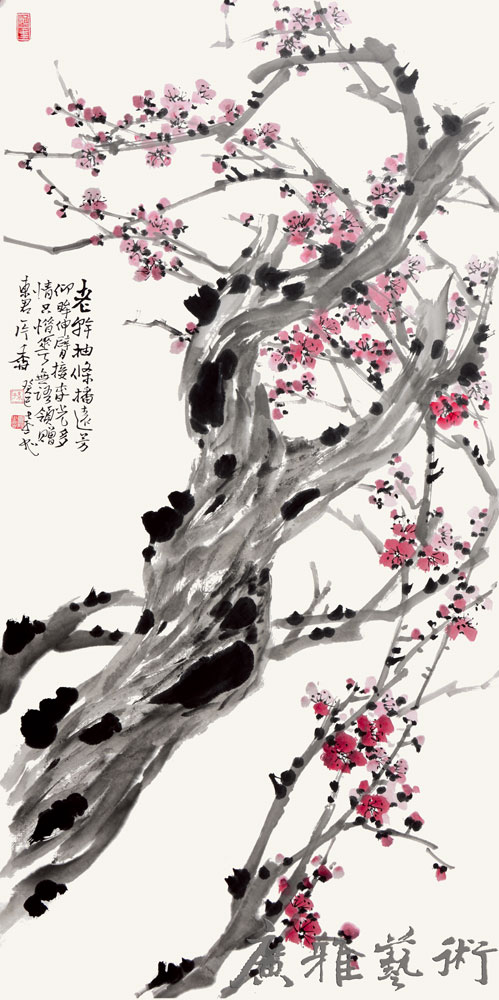 老幹抽條播遠芳
仰眸伸臂接春光多
情只惜花無語領贈
東君一片香 癸巳
廣雅藝術